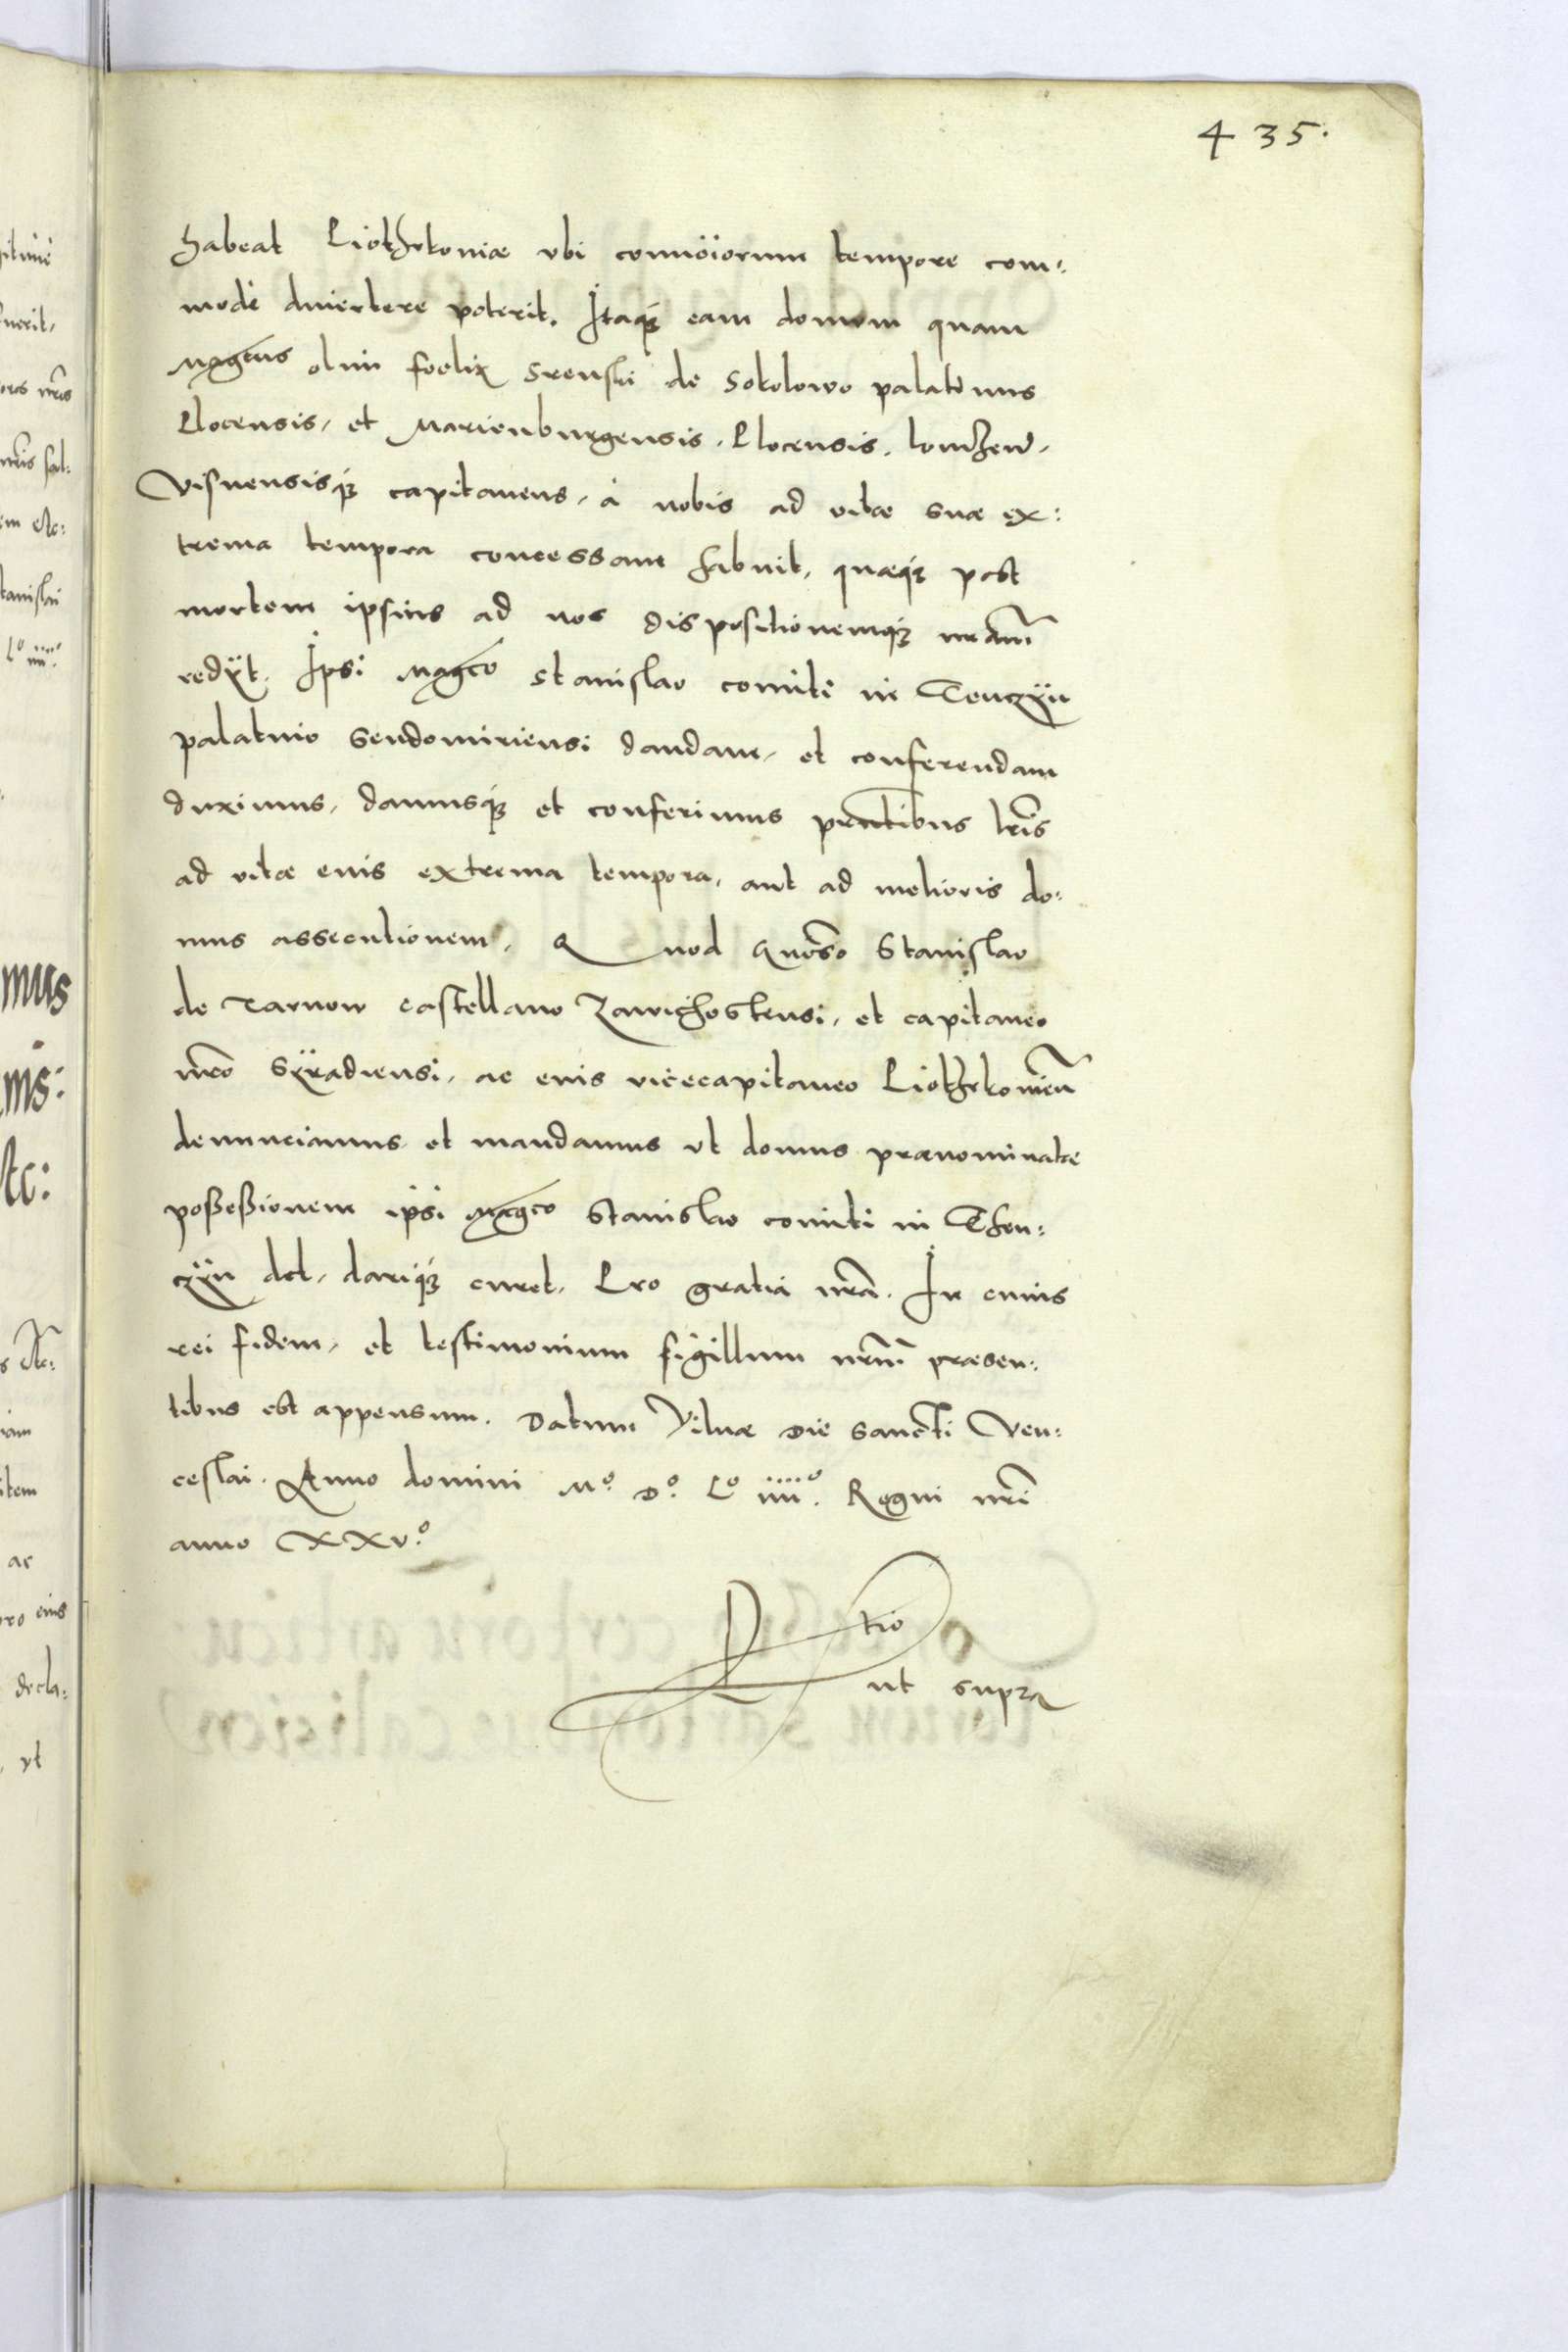 435.
habeat Piothrkoniæ vbi conuē̈iorum tempore com:
modè diuertere poterit. Itaq3 eam domum quam
Magcus olim foelix Srenski de Sokolowo palatinus
Plocensis, et Marienburgensis, Plocensis, lomzen̄,
Visnensisq3 capitaneus, à nobis ad vitæ suæ ex:
trema tempora concessam habuit, quæq3 post
mortem ipsius ad nos dispositionemq3 nr̄am
redÿt. Ipsi Magco Stanislao comiti in Tenczÿn
palatino Sendomiriensi dandam, et conferendam
duximus, damusq3 et conferimus pn̄tibus lr̄is
ad vitæ euis extrema tempora, aut ad melioris do:
mus assecutionem. Quod Gn̄oso Stanislao
de Tarnow castellano Zawichostensi, et capitaneo
nr̄o Sÿradiensi, ac euis vicecapitaneo Piothrkonien̄
denunciamus et mandamus vt domus prænominatæ
poßeßionem ipsi Magco Stanislao comiti in Then:
czÿn det, dariq3 curet, Pro gratia nr̄a. In cuius
rei fidem, et testimonium sigillum nr̄um præsen:
tibus est appensum. Datum Vilnæ die sancti Ven:
ceslai. Anno domini Mº. Dº. Lº iiiiº. Regni nr̄i
anno XXvº.
Rtio
ut supra